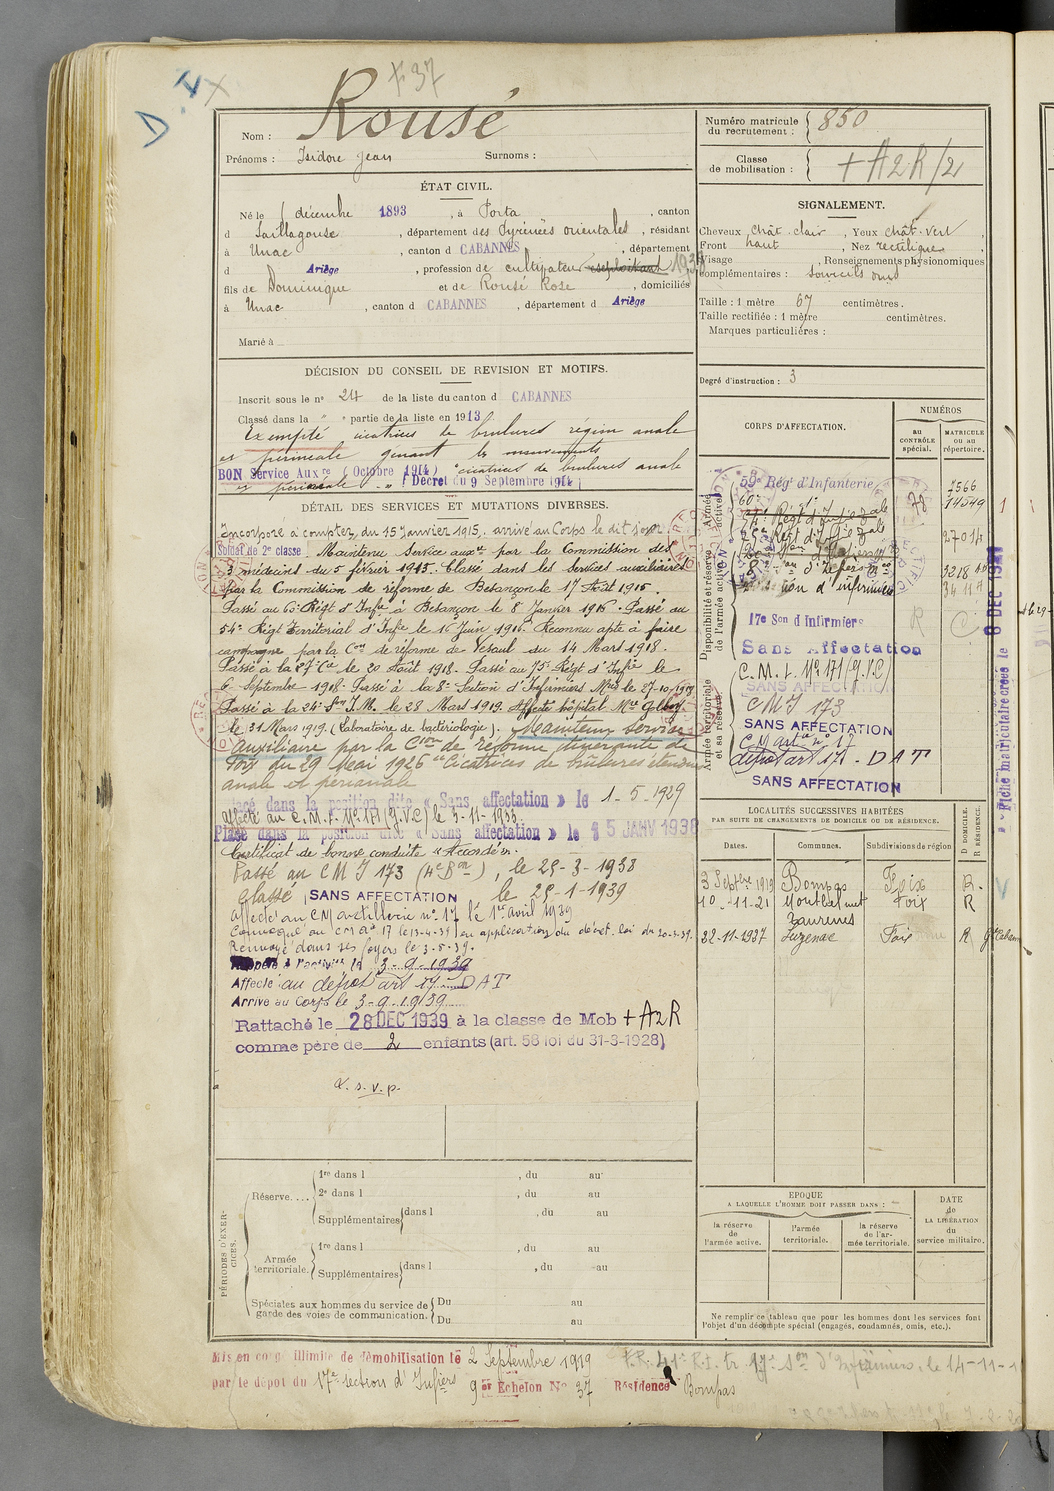 F 37
D. X
Nom : Rousé
Prénoms : Isidore Jean Surnoms :
ÉTAT CIVIL.
Né le 1 décembre 1893, à Porta, canton
d Saillagouse, département des Pyrénées orientales, résidant
à Unac, canton d CABANNES, département
d Ariège, profession de cultivateur
fils de Dominique et de Rousé Rose, domiciliés
à Unac, canton d CABANNES, département d Ariège
Marié à
DÉCISION DU CONSEIL DE REVISION ET MOTIFS.
Inscrit sous le n° 24 de la liste du canton d CABANNES
Classé dans la " partie de la liste en 1913
Exempté cicatrices de brulures région anale
et périnéale genant les mouvements
BON Service Auxre (Octobre 1914) "cicatrices de brulures anale
et périnéale " (Décret du 9 Septembre 1914)
DÉTAIL DES SERVICES ET MUTATIONS DIVERSES.
Incorporé à compter du 15 Janvier 1915, arrivé au Corps le dit jour
Soldat de 2e classe. Maintenu Service auxre par la Commission des
3 médecins du 5 février 1915. Classé dans les Services auxiliaires
par la Commission de réforme de Besançon le 17 Août 1915.
Passé au 60e Régt d'Infie à Besançon le 8 Janvier 1916. Passé au
54e Régt Territorial d'Infie le 16 Juin 1916. Reconnu apte à faire
campagne par la Con de réforme de Vesoul du 14 Mars 1918.
Passé à la 27e Cie le 20 Août 1918. Passé au 75e Régt d'Infie le
6 Septembre 1918. Passé à la 8e Section d'Infirmiers Mres le 27-10-1918
Passé à la 24e Son I.M. le 28 Mars 1919. Affecté hôpital Mre
le 31 Mars 1919. (Laboratoire de bactériologie). Maintenu service
Auxiliaire par la Cion de réforme itinérante de
Foix du 29 Mai 1926 "Cicatrices de brûlures étendues
anale et périnéale
Placé dans la position dite « Sans affectation » le 1-5-1929
affecté au C.M.I. N° 171 (G.V.C) le 3-11-1933
Placé dans la position dite « Sans affectation » le 15 JANV 1938
Certificat de bonne conduite "Accordé".
Passé au CMI 173 (4e Bon), le 25-3-1938
Classé SANS AFFECTATION le 25-1-1939
Affecté au CM artillerie n° 17 le 1er avril 1939
Convoqué au CM art 17 le 13-4-39 en application du décret loi du 20-3-39.
Renvoyé dans ses foyers le 3-5-39.
Rappelé à l'activité le 3-9-1939
Affecté au dépot art 17 DAT
Arrivé au Corps le 3-9-1939
Rattaché le 28 DEC 1939 à la classe de Mob + A2R
comme père de 2 enfants (art. 58 loi du 31-3-1928)
T. s. v. p.
PÉRIODES D'EXERCICES.
Réserve.... 1re dans l , du au
2e dans l , du au
Supplémentaires dans l , du au
Armée territoriale. 1re dans l , du au
Supplémentaires dans l , du au
Spéciales aux hommes du service de garde des voies de communication. Du au
Du au
Mis en congé illimité de démobilisation le 2 Septembre 1919
par le dépôt du 17e section d'Infiers 9e Echelon N° 37 Résidence Bompas
Numéro matricule du recrutement : 850
Classe de mobilisation : + A2R/2
SIGNALEMENT.
Cheveux chât. clair, Yeux chât. vert,
Front haut, Nez rectiligne,
Visage , Renseignements physionomiques
complémentaires : sourcils
Taille : 1 mètre 67 centimètres.
Taille rectifiée : 1 mètre centimètres.
Marques particulières :
Degré d'instruction : 3
CORPS D'AFFECTATION.
NUMÉROS
au CONTRÔLE spécial.
MATRICULE ou au répertoire.
Armée active.
Disponibilité et réserve de l'armée active.
Armée territoriale et sa réserve.
59e Régt d'Infanterie 7566
60e 78 14549
75e Régt d'Infie 27014
3218
17e Son d'Infirmiers
Sans Affectation
C.M.I. N° 171 (G.V.C)
SANS AFFECTATION
CMI 173
SANS AFFECTATION
CM art n° 17
dépot art 17. - DAT
SANS AFFECTATION
Fiche matriculaire créée le 6 DEC 19
LOCALITÉS SUCCESSIVES HABITÉES
PAR SUITE DE CHANGEMENTS DE DOMICILE OU DE RÉSIDENCE.
Dates. Communes. Subdivisions de région D DOMICILE. R RÉSIDENCE.
2 Septbre 1919 Bompas Foix R.
10-11-21 Foix R
22-11-1937 Luzenac Foix R
EPOQUE
A LAQUELLE L'HOMME DOIT PASSER DANS :
la réserve de l'armée active.
l'armée territoriale.
la réserve de l'armée territoriale.
DATE de LA LIBÉRATION du service militaire.
Ne remplir ce tableau que pour les hommes dont les services font
l'objet d'un décompte spécial (engagés, condamnés, omis, etc.).